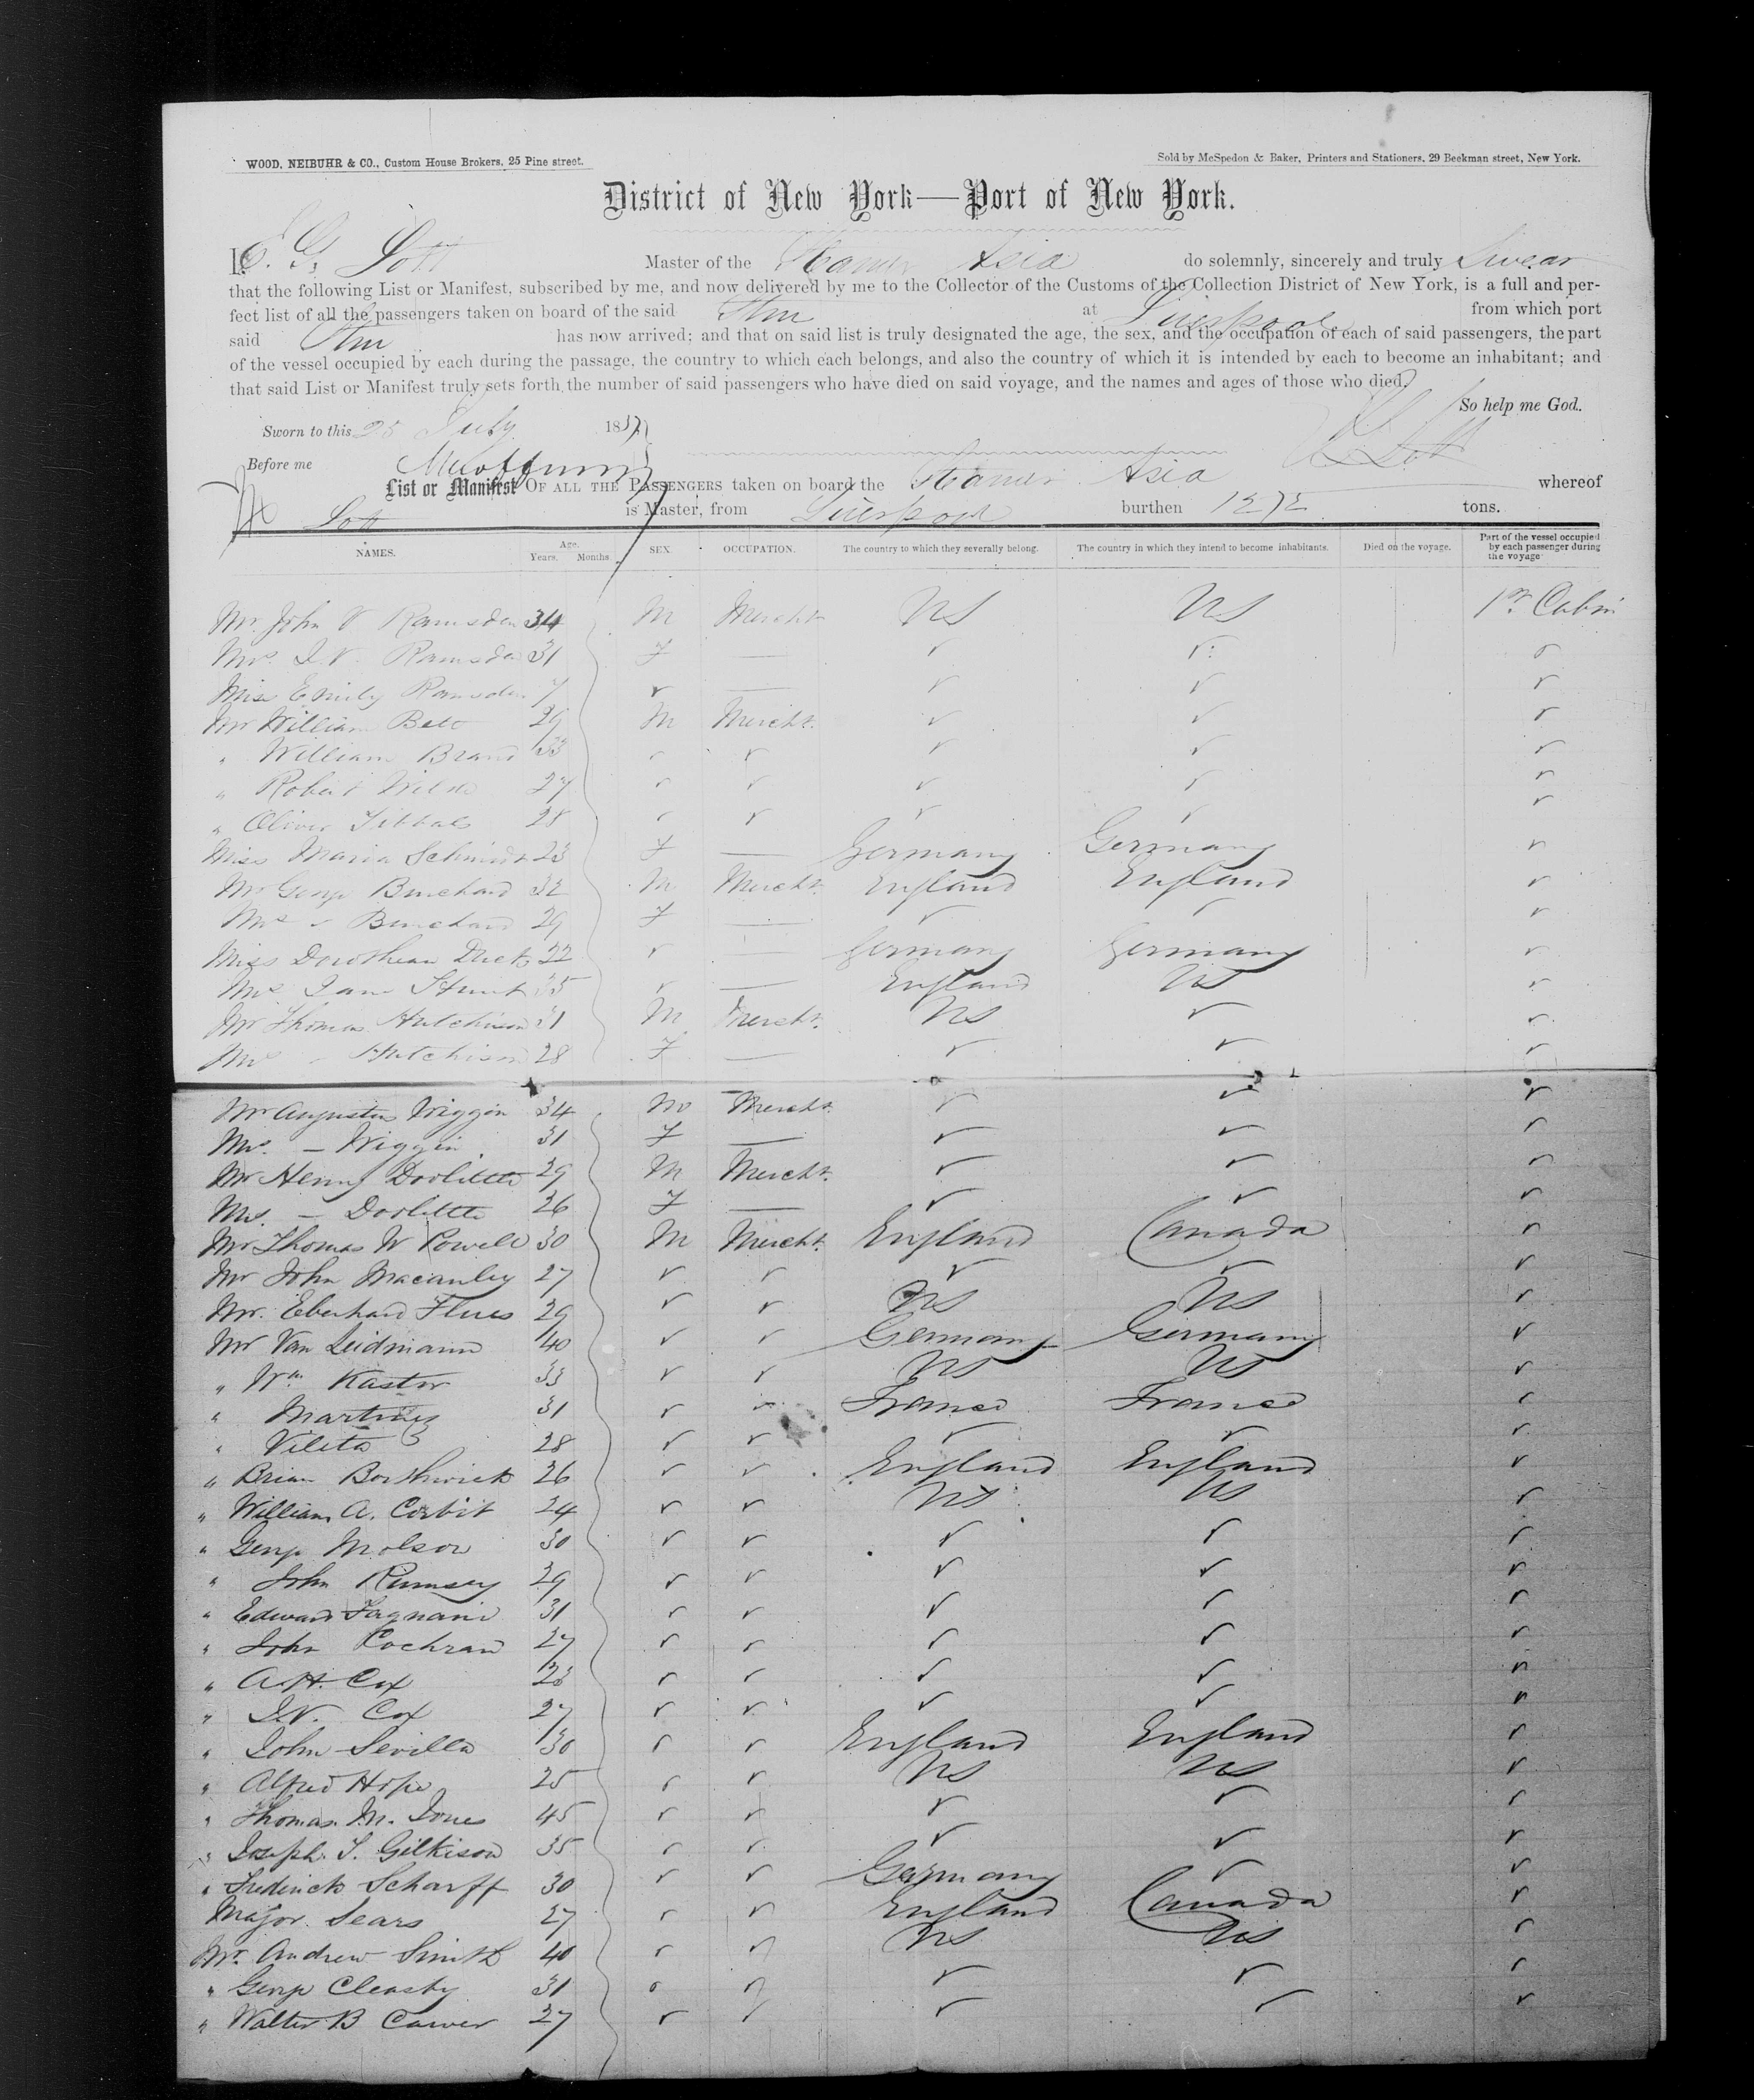 WOOD, NEIBUHR & CO., Custom House Brokers, 25 Pine street.
Sold by McSpedon & Baker, Printers and Stationers, 29 Beekman street, New York.
District of New York—Port of New York.
I, E. G. Lott Master of the Steamer Asia do solemnly, sincerely and truly Swear
that the following List or Manifest, subscribed by me, and now delivered by me to the Collector of the Customs of the Collection District of New York, is a full and per-
fect list of all the passengers taken on board of the said Stm at Liverpool from which port
said Stm has now arrived; and that on said list is truly designated the age, the sex, and the occupation of each of said passengers, the part
of the vessel occupied by each during the passage, the country to which each belongs, and also the country of which it is intended by each to become an inhabitant; and
that said List or Manifest truly sets forth the number of said passengers who have died on said voyage, and the names and ages of those who died.
So help me God.
Sworn to this 25 July 1857
Before me Lott
List or Manifest OF ALL THE PASSENGERS taken on board the Steamer Asia whereof
Lott is Master, from Liverpool burthen tons.
NAMES. Age. Years. Months. SEX. OCCUPATION. The country to which they severally belong. The country in which they intend to become inhabitants. Died on the voyage. Part of the vessel occupied by each passenger during the voyage
Mr. John V Ramsden 34 M Mercht US US 1st Cabin
Mrs. J. V. Ramsden 31 F — ✓ ✓ ✓
Miss Emily Ramsden 7 ✓ — ✓ ✓ ✓
Mr William 29 M Mercht. ✓ ✓ ✓
" William Brand 33 ✓ ✓ ✓ ✓ ✓
" Robert Wilde 27 ✓ ✓ ✓ ✓ ✓
" Oliver Tibbals 28 ✓ ✓ ✓ ✓ ✓
Miss Maria Schmidt 23 F — Germany Germany ✓
Mr George Burchard 32 M Mercht. England England ✓
Mrs " Burchard 29 F — ✓ ✓ ✓
Miss Dorothean 22 ✓ — Germany Germany ✓
Mrs Jane 35 ✓ — England US ✓
Mr Thomas Hutchison 31 M Mercht. US ✓ ✓
Mrs - Hutchison 28 F — ✓ ✓ ✓
Mr Augustus Wiggin 34 M Mercht. ✓ ✓ ✓
Mrs. — Wiggin 31 F — ✓ ✓ ✓
Mr Henry Doolittle 29 M Mercht. ✓ ✓ ✓
Mrs. — Doolittle 26 F — ✓ ✓ ✓
Mr Thomas W Powell 30 M Mercht. England Canada ✓
Mr John Macauley 27 ✓ ✓ ✓ ✓ ✓
Mr. Eberhard Flues 29 ✓ ✓ US US ✓
Mr Van Leidmann 40 ✓ ✓ Germany Germany ✓
" Wm Kastor 33 ✓ ✓ US US ✓
" Martinez 31 ✓ ✓ France France ✓
" Vileta 28 ✓ ✓ ✓ ✓ ✓
" Brian Borthwick 26 ✓ ✓ England England ✓
" William A. Corbit 24 ✓ ✓ US US ✓
" George Molson 30 ✓ ✓ ✓ ✓ ✓
" John Rumsey 29 ✓ ✓ ✓ ✓ ✓
" Edward Fagnani 31 ✓ ✓ ✓ ✓ ✓
" John Cochran 27 ✓ ✓ ✓ ✓ ✓
" A. H. Cox 23 ✓ ✓ ✓ ✓ ✓
" J. V. Cox 27 ✓ ✓ ✓ ✓ ✓
" John Sevilla 30 ✓ ✓ England England ✓
" Alfred Hope 25 ✓ ✓ US US ✓
" Thomas M. Jones 45 ✓ ✓ ✓ ✓ ✓
" Joseph S. Gilkison 35 ✓ ✓ ✓ ✓ ✓
" Frederick Scharff 30 ✓ ✓ Germany ✓ ✓
Major Sears 27 ✓ ✓ England Canada ✓
Mr. Andrew Smith 40 ✓ ✓ US US ✓
" George Cleasby 31 ✓ ✓ ✓ ✓ ✓
" Walter B Carver 27 ✓ ✓ ✓ ✓ ✓